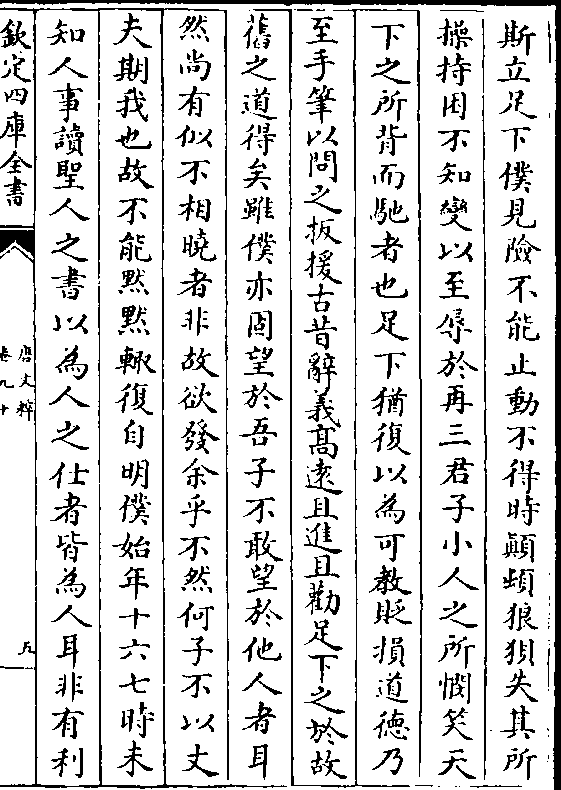 斯立足下僕見險不能止動不得時顛蚏狼狽失其所
操持困不知變以至辱於再三君子小人之所憫笑天
下之所背而馳者也足下猶復以為可教貶損道德乃
至手筆以問之扳援古昔辭義高逺且進且勸足下之於故
舊之道得矣雖僕亦固望於吾子不敢望於他人者耳
然尚有似不相曉者非故欲發余乎不然何子不以丈
夫期我也故不能黙黙輙復自明僕始年十六七時未
知人事讀聖人之書以為人之仕者皆為人耳非有利
欽定四庫全書
唐文粹
卷九十
五